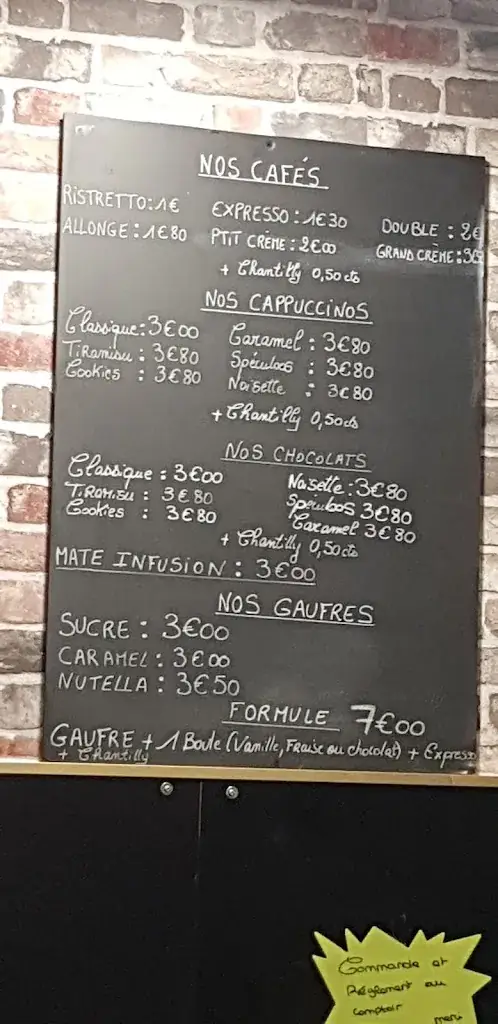 NOS CAFÉS
RISTRETTO:1€ EXPRESSO:1€30 DOUBLE : 2€
ALLONGE:1€80 PTIT CRÈME:2€00 GRAND CRÈME:3€
+ Chantilly 0,50cts
NOS CAPPUCCINOS
Classique:3€00 Caramel : 3€80
TIRAMISU : 3€80 Spéculoos : 3€80
Cookies : 3€80 Noisette : 3€80
+ Chantilly 0,50cts
NOS CHOCOLATS
Classique : 3€00 Noisette:3€80
TIRAMISU : 3€80 Speculoos 3€80
Cookies : 3€80 Caramel 3€80
+ Chantilly 0,50cts
MATE INFUSION : 3€00
NOS GAUFRES
SUCRE : 3€00
CARAMEL : 3€00
NUTELLA : 3€50
FORMULE 7€00
GAUFRE + 1 Boule (Vanille, Fraise ou chocolat) + Expresso
+ Chantilly
Commande et
Règlement au
comptoir
merci